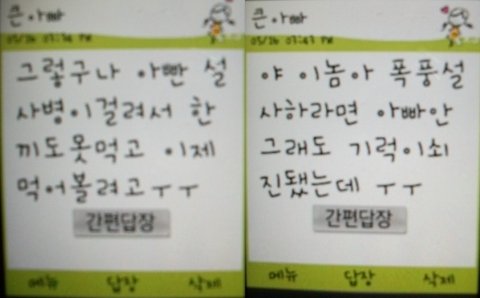 큰아빠
05/26 07:36 PM
그렇구나 아빤 설
사병이걸려서 한
끼도못먹고 이제
먹어볼려고ㅜㅜ
간편답장
메뉴 답장 삭제
큰아빠
05/26 07:43 PM
야 이놈아 폭풍설
사하라면 아빠안
그래도 기력이쇠
진됐는데 ㅜㅜ
간편답장
메뉴 답장 삭제